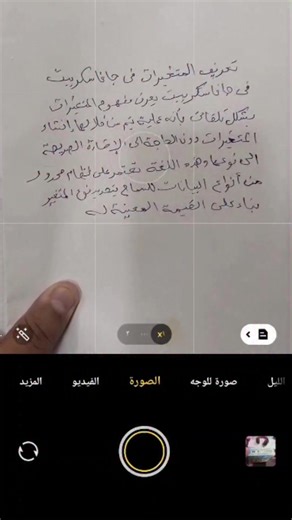 تعريف المتغيرات في جافاسكريبت
في جافاسكريبت يعرف مفهوم المتغيرات
بشكل تلقائي بأنه عملية يتم من خلالها انشاء
المتغيرات دون الحاجة الى الإشارة الصريحة
الى نوعها وهذه اللغة تعتمد على نظام
من أنواع البيانات للسماح بتحديد نوع المتغير
بناء على القيمة المعينة له
x١
٢
الليل
صورة للوجه
الصورة
الفيديو
المزيد